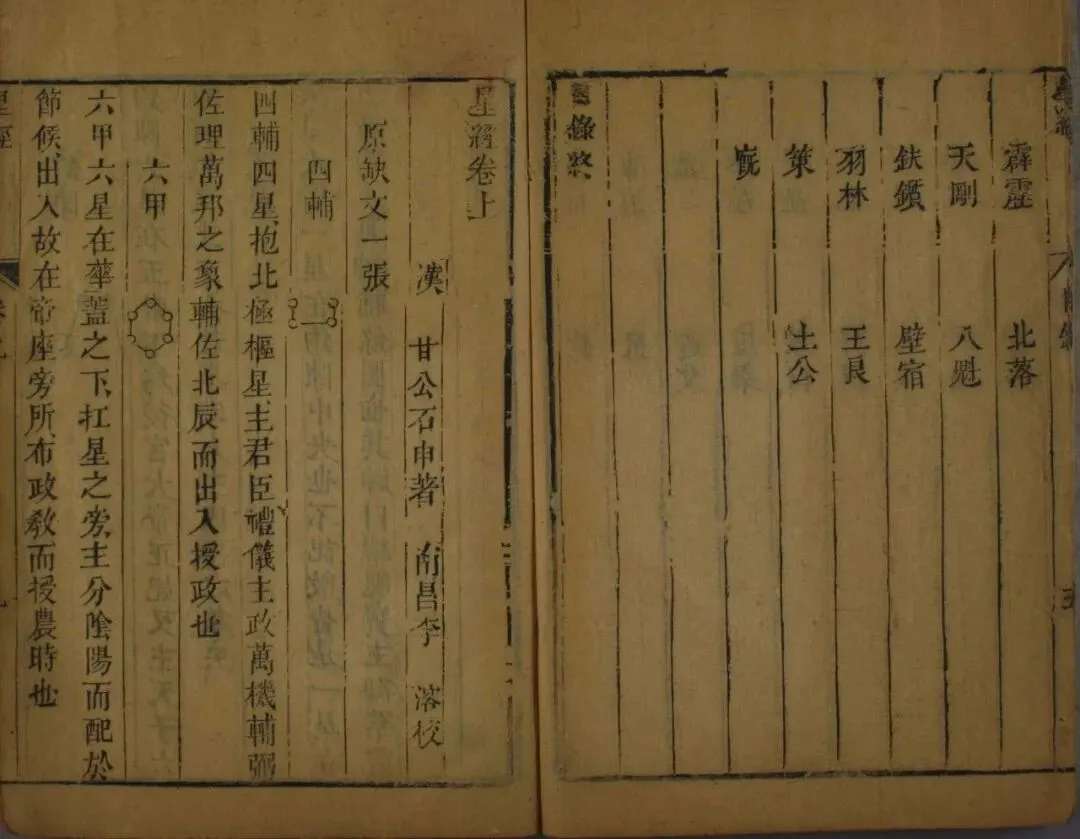 霹靂 北落
天剛 八魁
鈇鑕 壁宿
羽林 王良
策 土公
廐
目錄終
星經卷上
漢 甘公石申著 南昌李 濬校
原缺文一張
四輔
四輔四星抱北極樞星主君臣禮儀主政萬機輔弼
佐理萬邦之象輔佐北辰而出入授政也
六甲
六甲六星在華蓋之下扛星之旁主分陰陽而配於
節候出入故在帝座旁所布政教而授農時也
星經